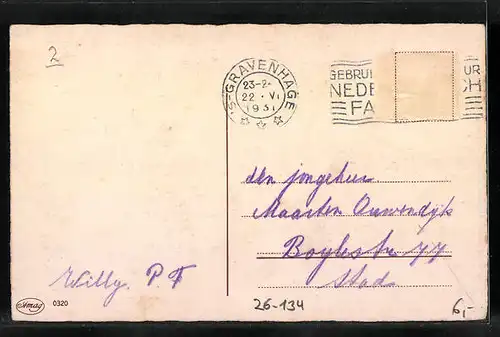 2
'S-GRAVENHAGE
23-2-
22 · VI
1931
GEBRUI UR
NEDE CH
FA
den jongeheer
Maarten Ouwendijk
Boylestr. 77
Stad
Willy. P. F
Amag 0320
26-134
6,-